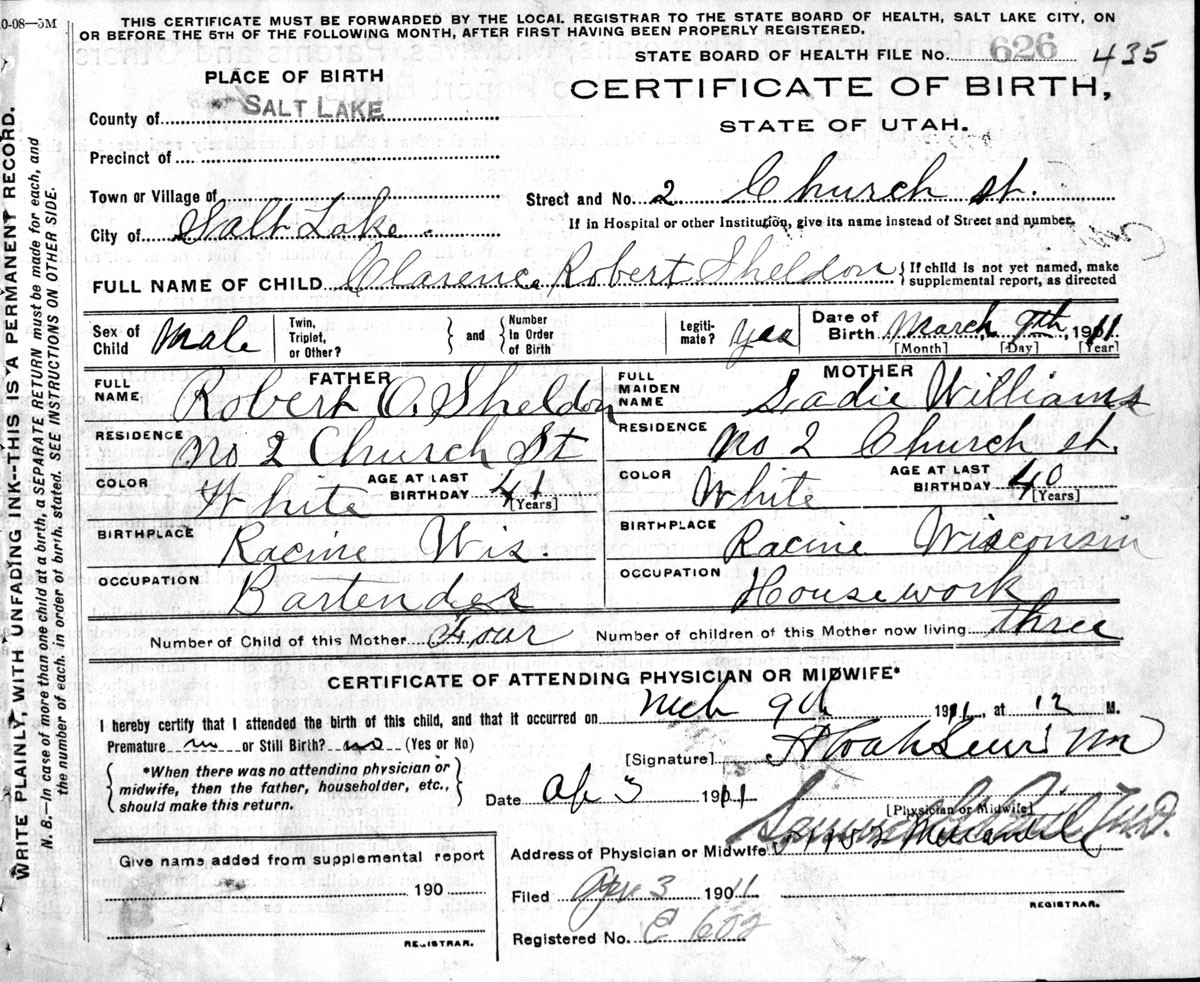 0-08—5M
THIS CERTIFICATE MUST BE FORWARDED BY THE LOCAL REGISTRAR TO THE STATE BOARD OF HEALTH, SALT LAKE CITY, ON
OR BEFORE THE 5TH OF THE FOLLOWING MONTH, AFTER FIRST HAVING BEEN PROPERLY REGISTERED.
STATE BOARD OF HEALTH FILE No. 626 435
PLACE OF BIRTH
CERTIFICATE OF BIRTH,
STATE OF UTAH.
County of SALT LAKE
Precinct of
Town or Village of
Street and No. 2 Church St.
City of Salt Lake.
If in Hospital or other Institution, give its name instead of Street and number.
FULL NAME OF CHILD Clarence Robert Sheldon
If child is not yet named, make
supplemental report, as directed
Sex of Child Male
Twin, Triplet, or Other?
and
Number in Order of Birth
Legitimate? Yes
Date of Birth March 9th, 1911
[Month] [Day] [Year]
FATHER
FULL NAME Robert O. Sheldon
RESIDENCE No 2 Church St
COLOR White AGE AT LAST BIRTHDAY 41 [Years]
BIRTHPLACE Racine Wis.
OCCUPATION Bartender
MOTHER
FULL MAIDEN NAME Sadie Williams
RESIDENCE No 2 Church St.
COLOR White AGE AT LAST BIRTHDAY 40 [Years]
BIRTHPLACE Racine Wisconsin
OCCUPATION Housework
Number of Child of this Mother Four Number of children of this Mother now living three
CERTIFICATE OF ATTENDING PHYSICIAN OR MIDWIFE*
I hereby certify that I attended the birth of this child, and that it occurred on Mch 9th 1911, at 12 M.
Premature no or Still Birth? no (Yes or No)
[Signature]
*When there was no attending physician or
midwife, then the father, householder, etc.,
should make this return.
Date Ap 3 1911
[Physician or Midwife]
Address of Physician or Midwife
Give name added from supplemental report
190
REGISTRAR.
Filed Apr 3 1911
REGISTRAR.
Registered No. C 602
WRITE PLAINLY, WITH UNFADING INK--THIS IS A PERMANENT RECORD.
N. B.—In case of more than one child at a birth, a SEPARATE RETURN must be made for each, and
the number of each, in order of birth, stated. SEE INSTRUCTIONS ON OTHER SIDE.